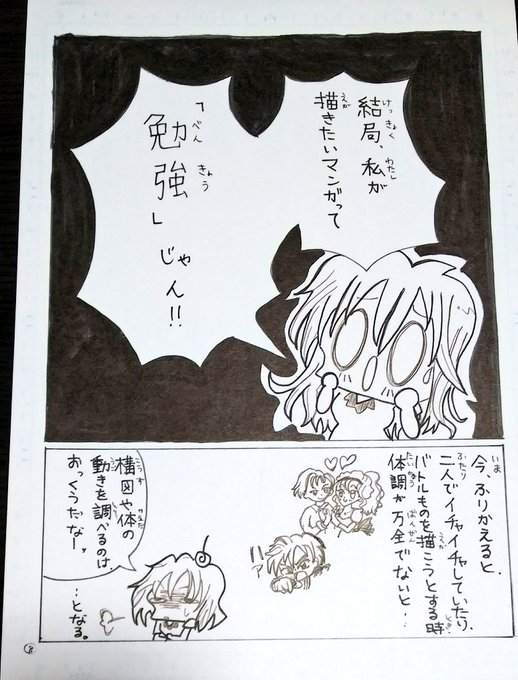 結局、私が
描きたいマンガって
「勉強」じゃん!!
今、ふりかえると、
二人でイチャイチャしていたり、
バトルものを描こうとする時、
体調が万全でないと…
ハァ
構図や体の
動きを調べるのは、
おっくうだなーッ
…となる。
⑧